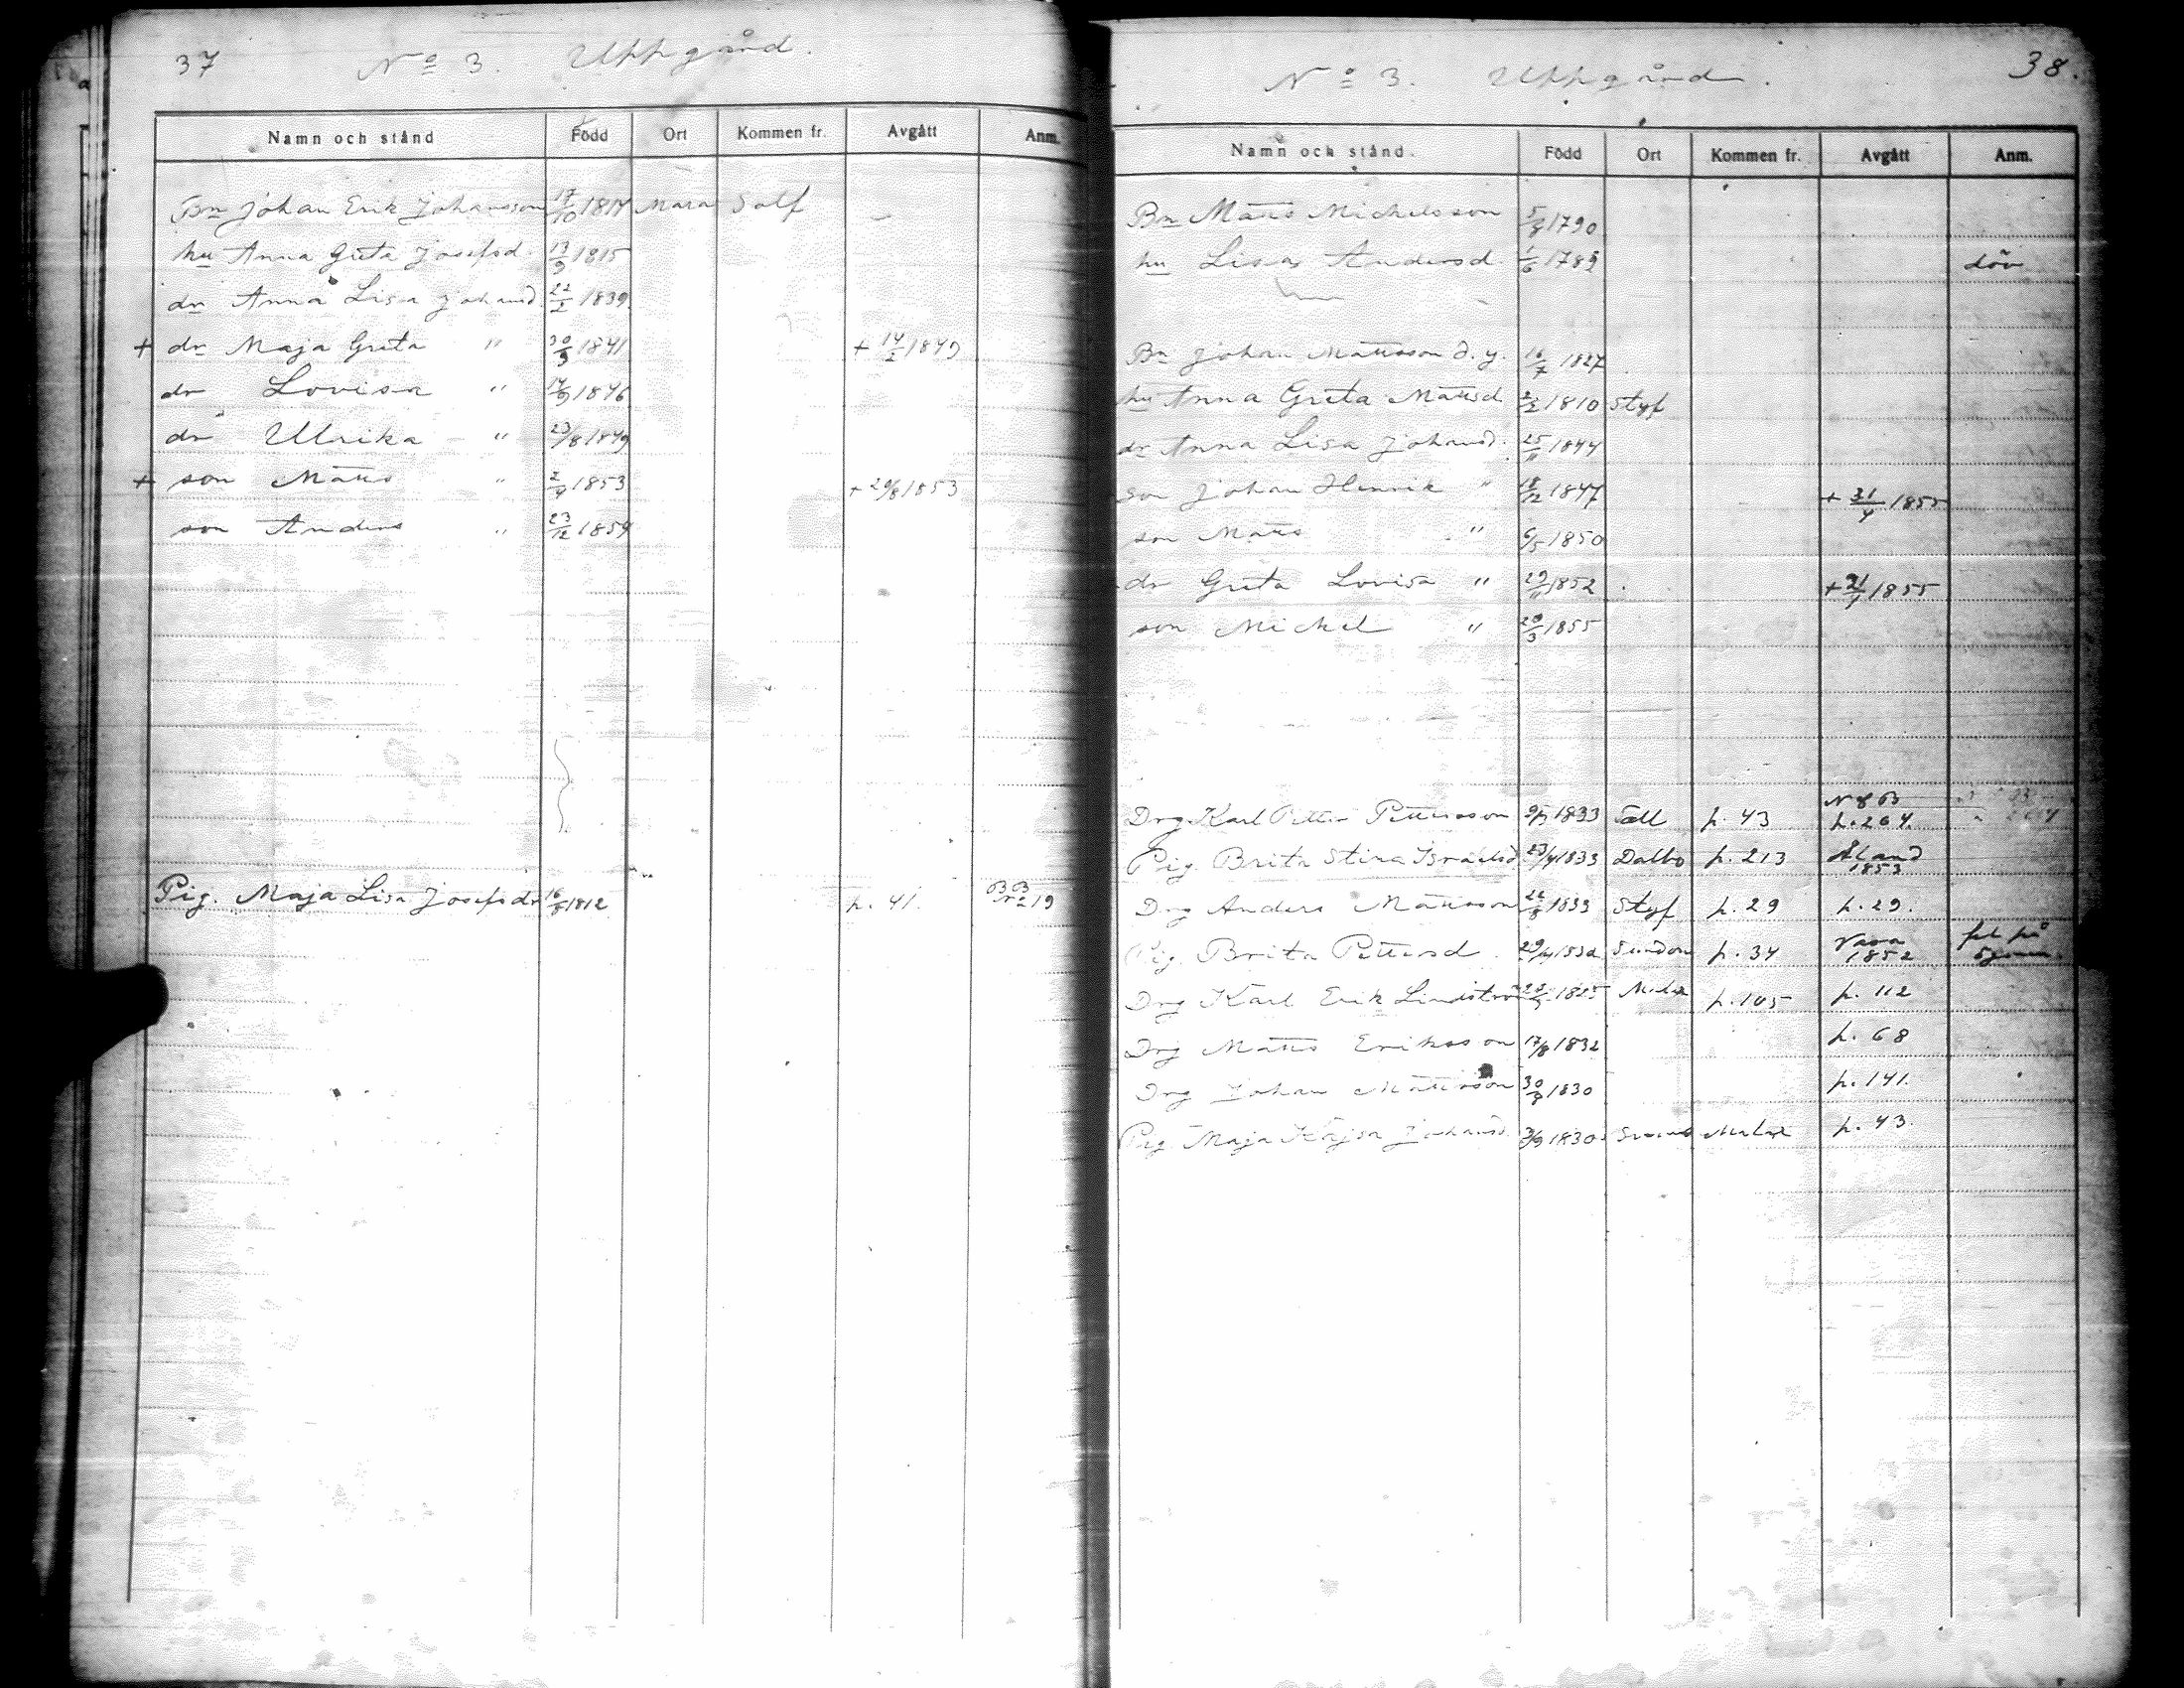 37 No 3. Uppgård.
Namn och stånd Född Ort Kommen fr. Avgått Anm.
Bn Johan Erik Johansson 17/10 1814 Mara Solf
hu Anna Greta Josefsd. 13/9 1815
dr Anna Lisa Johansd. 22/2 1839
+ dr Maja Greta " 30/3 1841 + 14/2 1849
dr Lovisa " 14/9 1846
dr Ulrika " 23/8 1849
+ son Matts " 2/4 1853 + 20/8 1853
son Anders " 23/12 1854
Pig. Maja Lisa Josefsdr 16/8 1812 p. 41. BB No 19
No 3. Uppgård. 38.
Namn och stånd. Född Ort Kommen fr. Avgått Anm.
Bn Matts Michelsson 5/8 1790
hu Lisa Andersd. 1/6 1789 döv
Bn Johan Mattsson d.y. 16/7 1827
hu Anna Greta Mattsd 2/2 1810 Styf
dr Anna Lisa Johansd. 25/11 1844
son Johan Henrik " 18/12 1847 + 31/4 1855
son Matts " 6/5 1850
dr Greta Lovisa " 29/11 1852 + 21/4 1855
son Michel " 20/3 1855
Drg Karl Petter Pettersson 1833 Täll p. 43 N 8 B p. 264.
Pig. Brita Stina Israelsd 23/4 1833 Dalbo p. 213 Åland 1853
Drg Anders Mattsson 22/8 1833 Styf p. 29 p. 29.
Pig. Brita Pettersd. 29/4 1832 Sundom p. 34 Vasa 1852 fel på ögonen.
Drg Karl Erik Lindström 1825 Malax p. 105 p. 112
Drg Matts Eriksson 17/8 1832 p. 68
Drg Johan Mattsson 30/8 1830 p. 141.
Pig. Maja Kajsa Johansd. 3/9 1830 Malax p. 43.